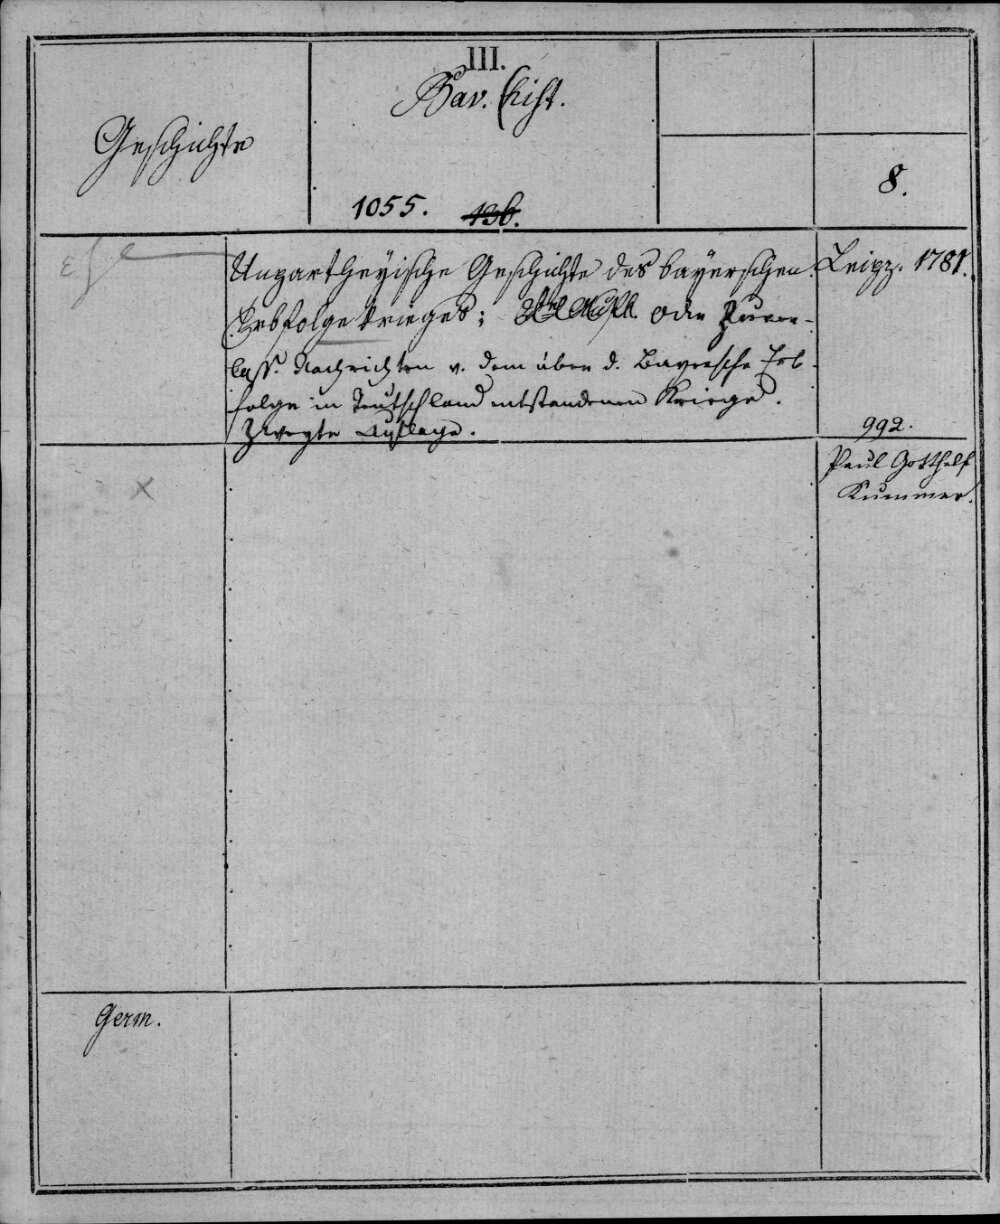 III.
Bav. hist.
Geschichte
8.
1055. 436.
Unpartheyische Geschichte des bayerschen
Erbfolge krieges; oder Zuver-
lass. Nachrichten v. dem über d. Bayersche Erb-
folge in Teutschland entstandenen Kriege.
Zweyte Auflage.
Leipz. 1781.
992.
Paul Gotthelf
Kummer.
x
Germ.